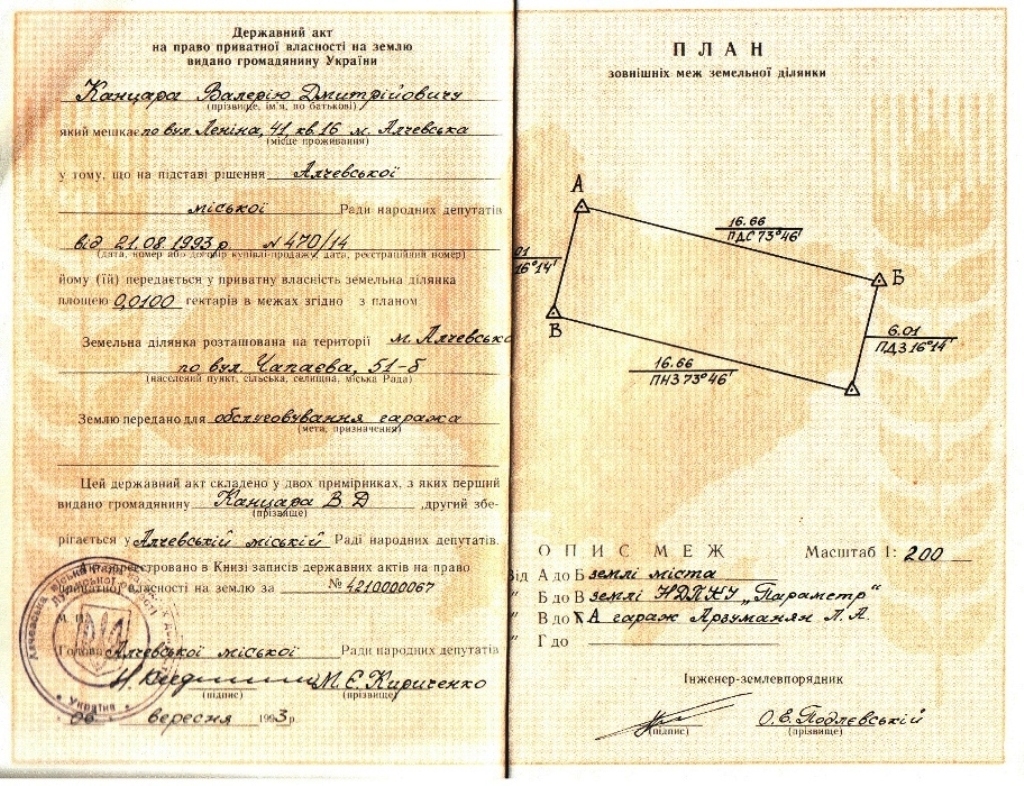 Державний акт
на право приватної власності на землю
видано громадянину України
Канцара Валерію Дмитрійовичу
(прізвище, ім'я, по батькові)
який мешкає по вул. Леніна, 41, кв 16 м. Алчевська
(місце проживання)
у тому, що на підставі рішення Алчевської
міської Ради народних депутатів
від 21.08.1993 р. N 470/14
(дата, номер або договір купівлі-продажу, дата, реєстраційний номер)
йому (їй) передається у приватну власність земельна ділянка
площею 0,0100 гектарів в межах згідно з планом
Земельна ділянка розташована на території м. Алчевська
по вул. Чапаєва, 51-б
(населений пункт, сільська, селищна, міська Рада)
Землю передано для обслуговування гаража
(мета, призначення)
Цей державний акт складено у двох примірниках, з яких перший
видано громадянину Канцара В. Д ,другий збе-
(прізвище)
рігається у Алчевській міській Раді народних депутатів.
Акт зареєстровано в Книзі записів державних актів на право
приватної власності на землю за № 4210000067
М. П.
Голова Алчевської міської Ради народних депутатів
М. Є. Кириченко
(підпис) (прізвище)
" 06 " вересня 1993 р.
Україна
ПЛАН
зовнішніх меж земельної ділянки
А
16.66
ПДС 73°46'
Б
01
16°14'
В
6.01
ПДЗ 16°14'
16.66
ПНЗ 73°46'
ОПИС МЕЖ Масштаб 1: 200
Від А до Б землі міста
" Б до В землі НДПКУ „Параметр“
" В до А гараж Арзуманян Л. А.
" Г до
Інженер-землевпорядник
О. Е. Подлєвській
(підпис) (прізвище)